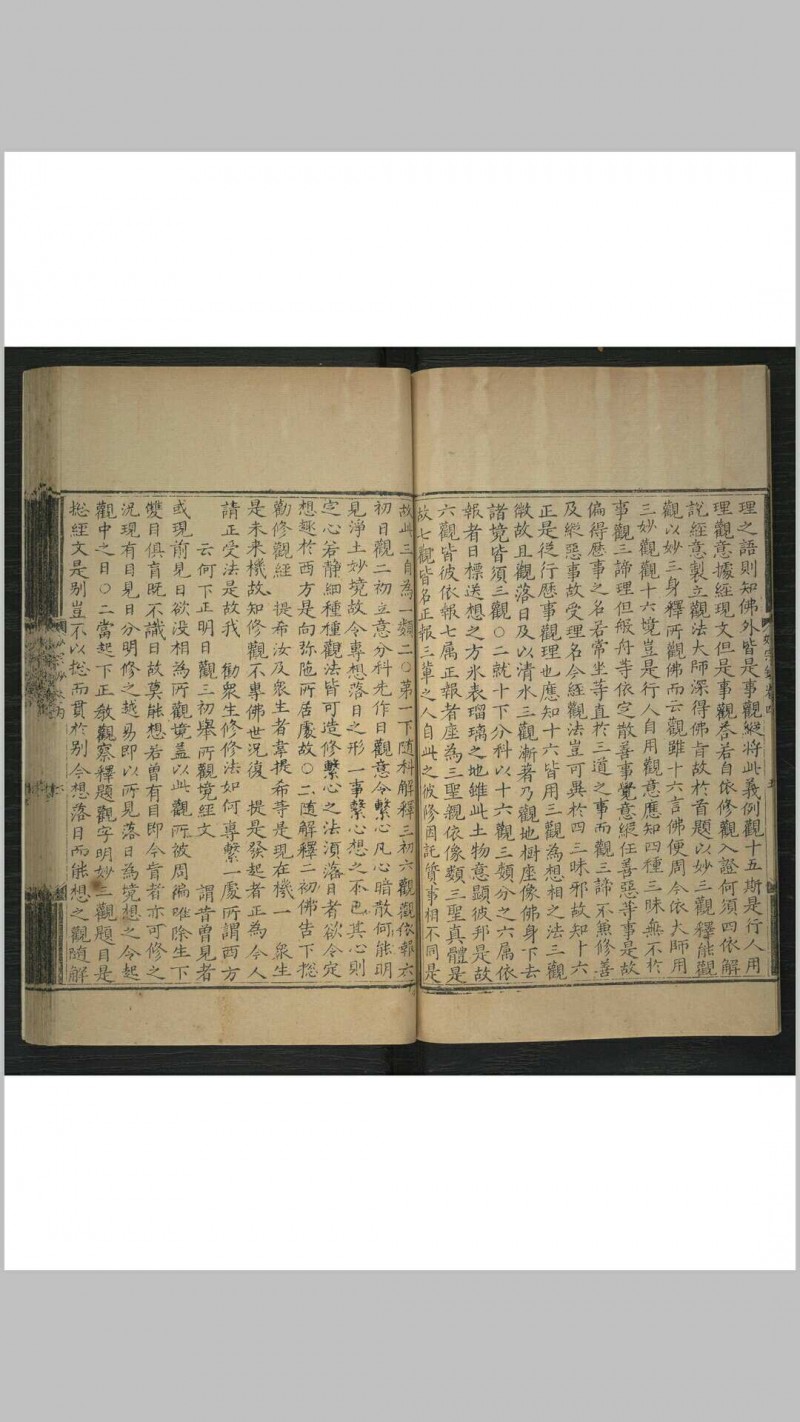 理之語則知佛外皆是事觀縱將此義例觀十五斯是行人用
理觀意據經現文但是事觀荅若自依修觀入證何須四依解
說經意製立觀法大師深得佛肯故於首題以妙三觀釋能觀
觀以妙三身釋所觀佛而云觀雖十六言佛便周今依大師用
三妙觀觀十六境豈是行人自用觀意應知四種三昧無不於
事觀三諦理但般舟等依定散善事覺意縱任善惡等事是故
偏得歷事之名若常坐等直於三道之事而觀三諦不兼修善
及縱惡事故受理名今經觀法豈可異於四三昧邪故知十六
正是從行歷事觀理也應知十六皆用三觀為想相之法三觀
微故且觀落日及以清水三觀漸著乃觀地樹座像佛身下去
諸境皆須三觀○二就十下分科以十六觀三類分之六屬依
報者日標送想之方氷表瑠璃之地雖此土物意顯彼邦是故
六觀皆彼依報七屬正報者座為三聖親依像類三聖真體是
故七觀皆名正報三軰之人自此之彼修因託質事相不同是
故此三自為一類二○第一下隨科解釋三初六觀觀依報六
初日觀二初立意分科先作日觀意令繫心凡心暗散何能明
見淨土妙境故令專想落日之形一事繫心想之不巳其心則
定心若靜細種種觀法皆可造修繫心之法須落日者欲令定
想趣於西方是向弥陁所居處故○二隨解釋二初佛告下揔
勸修觀經 提希汝及衆生者韋提希等是現在機一 衆生
是未来機故知修觀不專佛世況復 提是發起者正為今人
請正受法是故我 勸衆生修修法如何專繫一處所謂西方
云何下正明日觀三初舉所觀境經文 謂昔曽見者
或現前見日欲沒相為所觀境盖以此觀所被周徧唯除生下
雙目俱盲既不識日故莫能想若曽有目即今肓者亦可修之
況現有目見日分明修之越易即以所見落日為境想之令起
觀中之日○二當起下正教觀察釋題觀字明妙三觀題目是
揔經文是别豈不以揔而貫於别今想落日而能想之觀隨解